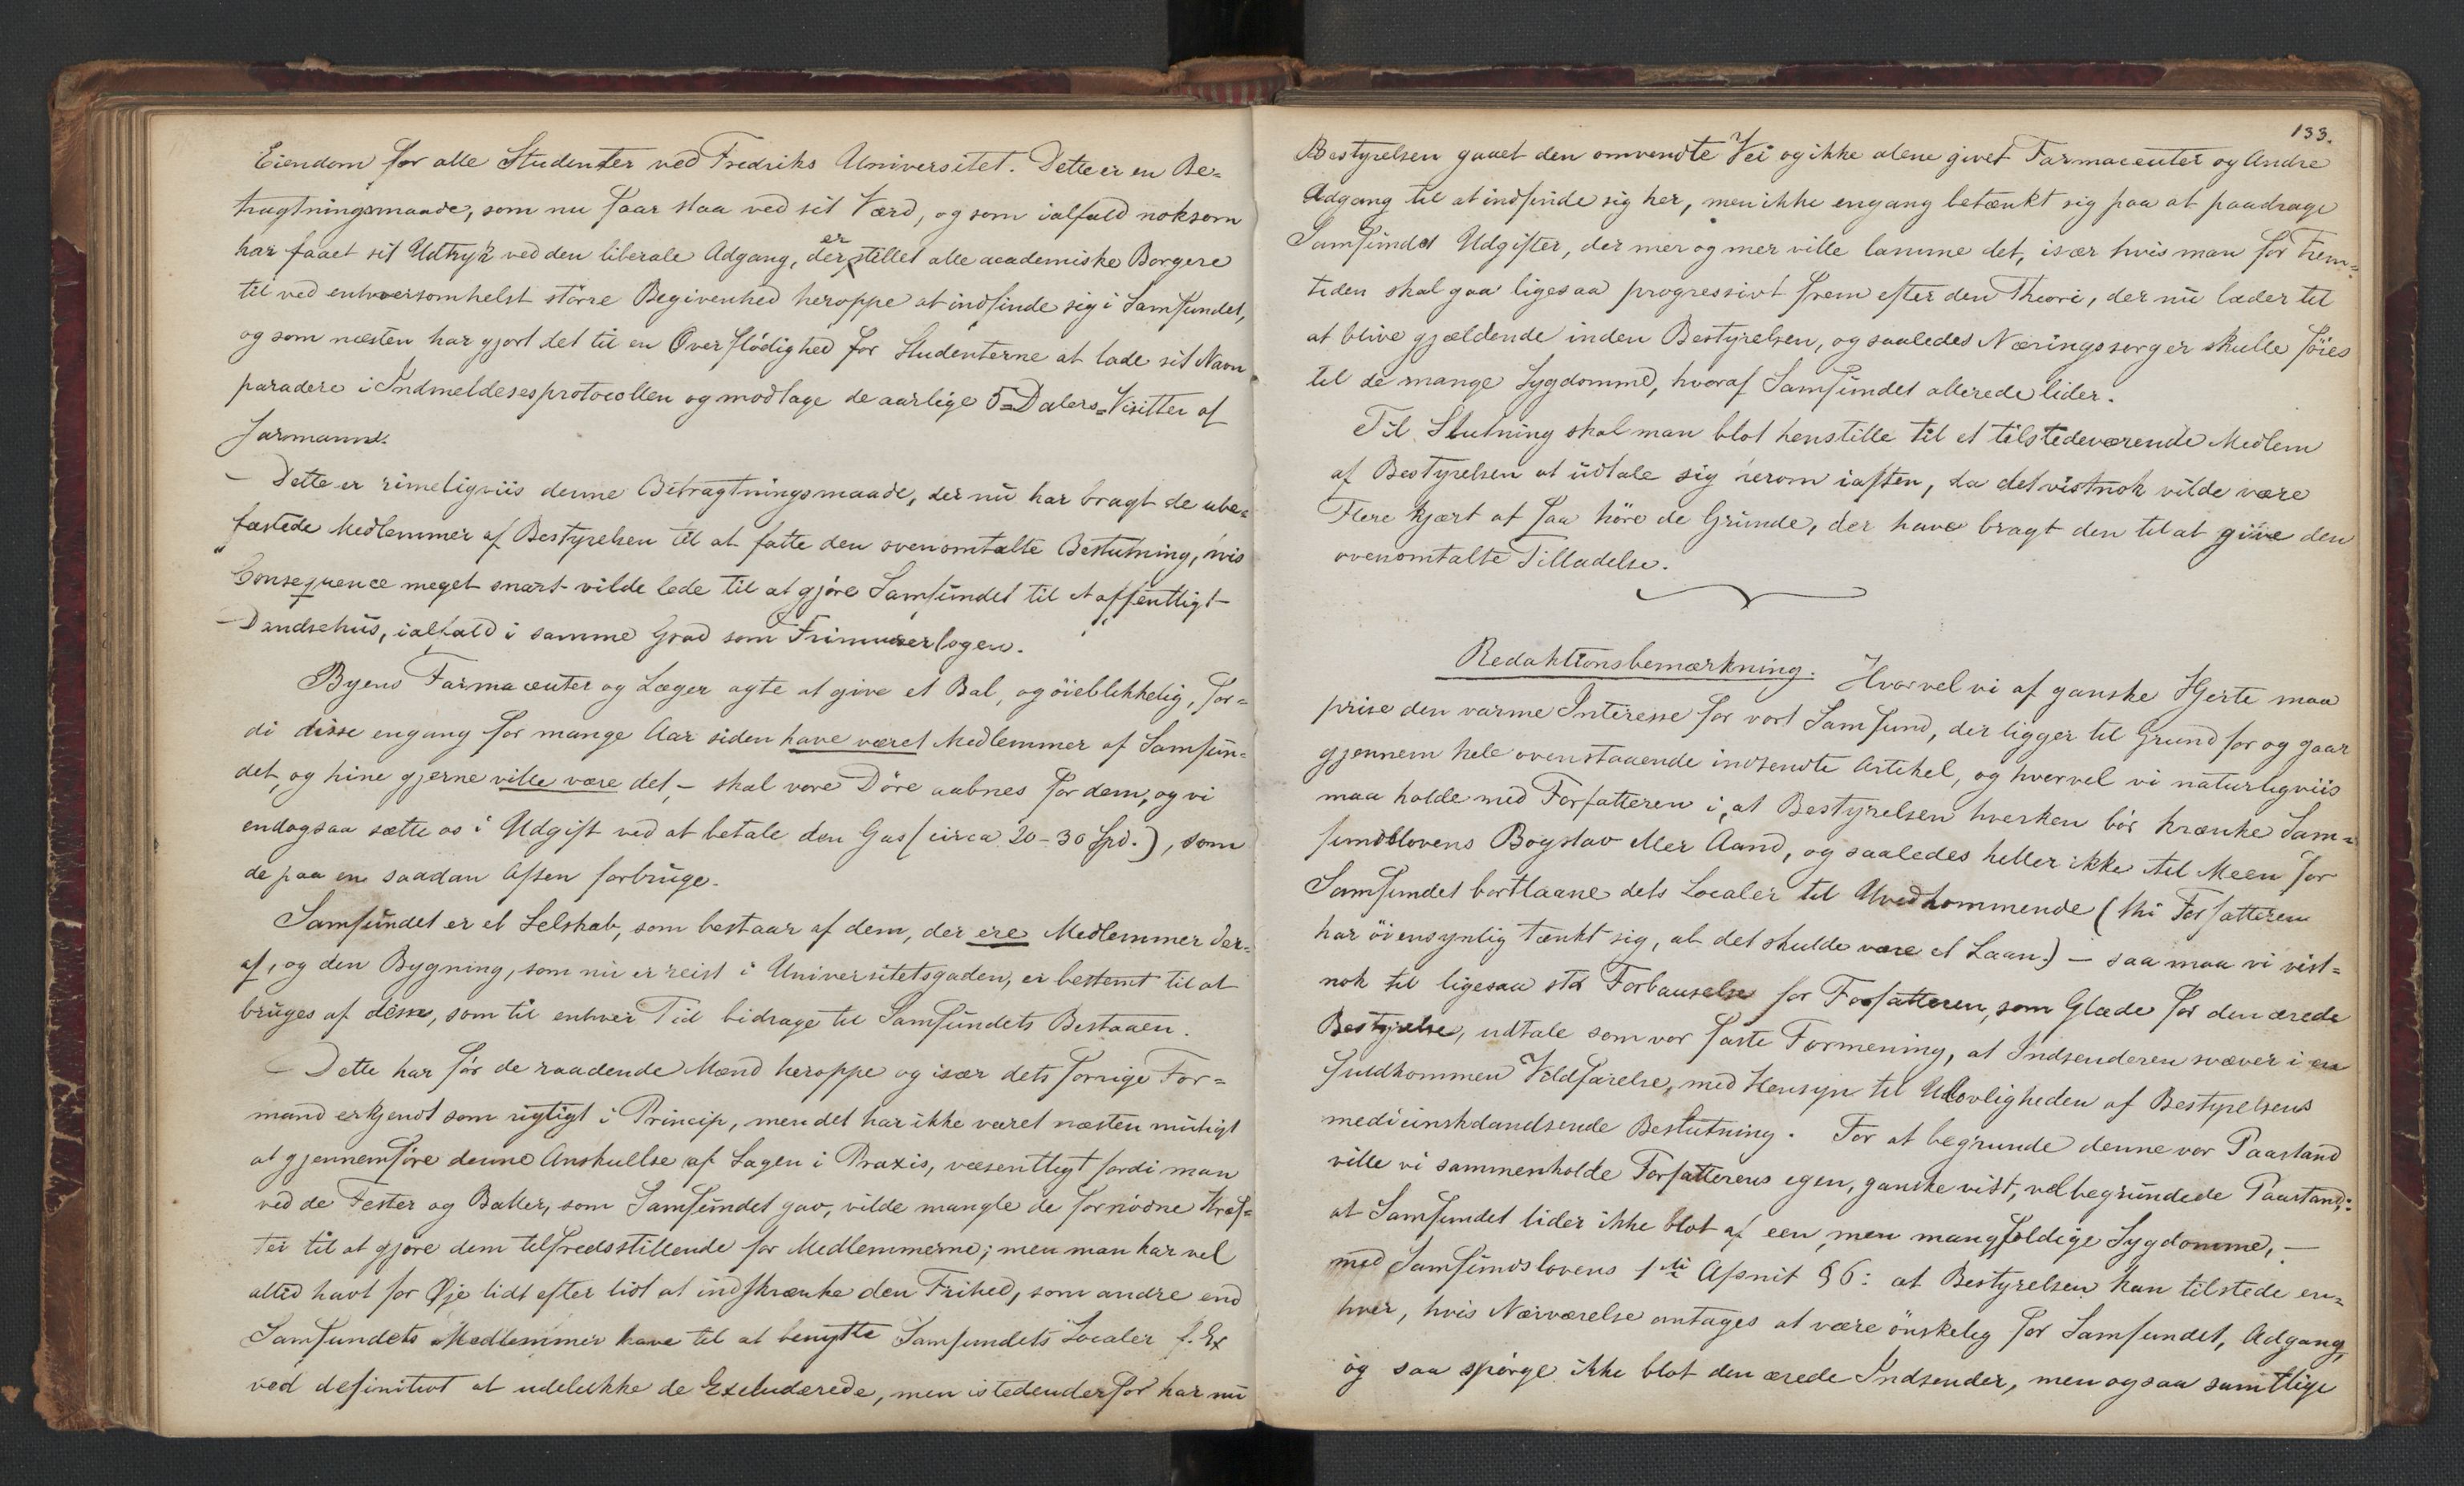 Eiendom for alle Studenter ved Fredriks Universitet. Dette er en Be=
tragtningsmaade, som nu faar staa ved sit Værd, og som ialfald noksom
har faaet sit Udtryk ved den liberale Adgang, der er stillet alle academiske Borgere
til ved enhversomhelst större Begivenhed heroppe at indfinde sig i Samfundet,
og som næsten har gjort det til en Overflödighed for Studenterne at lade sit Navn
paradere i Indmeldesesprotocollen og modtage de aarlige 5=Dalers=Visitter af
Farmann.
– Dette er rimeligviis denne Betragtningsmaade, der nu har bragt de ube=
fæstede Medlemmer af Bestyrelsen til at fatte den ovenomtalte Beslutning, hvis
Consequence meget snart vilde lede til at gjöre Samfundet til et offentligt
Dandsehus, ialfald i samme Grad som Frimurerlogen.
Byens Farmaceuter og Læger agte at give et Bal, og öieblikkelig, for=
di disse engang for mange Aar siden have været Medlemmer af Samfun=
det, og hine gjerne ville være det, – skal vore Döre aabnes for dem, og vi
endogsaa sætte os i Udgift ved at betale den Gas (circa 20–30 Spd.), som
de paa en saadan Aften forbruge.
Samfundet er et Selskab, som bestaar af dem, der ere Medlemmer der=
af, og den Bygning, som nu er reist i Universitetsgaden, er bestemt til at
bruges af disse, som til enhver Tid bidrage til Samfundets Bestaaen.
– Dette har för de raadende Mænd heroppe og især dets forrige For=
mand erkjendt som rigtigt i Princip, men det har ikke været næsten muligt
at gjennemföre denne Anskuelse af Sagen i Praxis, væsentligt fordi man
ved de Fester og Baller, som Samfundet gav, vilde mangle de fornödne Kræf=
ter til at gjöre dem tilfredsstillende for Medlemmerne; men man har vel
altid havt for Øje lidt efter lidt at indskrænke den Frihed, som andre end
Samfundets Medlemmer have til at benytte Samfundets Localer f. Ex
ved definitivt at udelukke de Excluderede, men istedenderfor har nu
133.
Bestyrelsen gaaet den omvendte Vei og ikke alene givet Farmaceuter og Andre
Adgang til at indfinde sig her, men ikke engang betænkt sig paa at paadrage
Samfundet Udgifter, der mer og mer ville lamme det, især hvis man for Frem=
tiden skal gaa ligesaa progressivt frem efter den Theori, der nu lader til
at blive gjældende inden Bestyrelsen, og saaledes Næringssorger skulle föies
til de mange Sygdomme, hvoraf Samfundet allerede lider.
Til Slutning skal man blot henstille til et tilstedeværende Medlem
af Bestyrelsen at udtale sig herom iaften, da det vistnok vilde være
Flere kjært at faa höre de Grunde, der have bragt den til at give den
ovenomtalte Tilladelse.
Redaktionsbemærkning. Hvorvel vi af ganske Hjerte maa
prise den varme Interesse for vort Samfund, der ligger til Grund for og gaar
gjennem hele ovenstaaende indsendte Artikel, og hvorvel vi naturligviis
maa holde med Forfatteren i, at Bestyrelsen hverken bör krænke Sam=
fundslovens Bogstav eller Aand, og saaledes heller ikke til Meen for
Samfundet bortlaane dets Localer til Uvedkommende (thi Forfatteren
har öiensynlig tænkt sig, at det skulde være et Laan.) – saa maa vi vist=
nok til ligesaa stor Forbauselse for Forfatteren, som Glæde for den ærede
Bestyrelse, udtale som vor faste Formening, at Indsenderen svæver i en
fuldkommen Vildfarelse, med Hensyn til Ulovligheden af Bestyrelsens
medicinskdandsende Beslutning. For at begrunde denne vor Paastand
ville vi sammenholde Forfatterens egen, ganske vist, velbegrundede Paastand:
at Samfundet lider ikke blot af een, men mangfoldige Sygdomme, –
med Samfundslovens 1ste Afsnit § 6: at Bestyrelsen kan tilstede en=
hver, hvis Nærværelse antages at være önskelig for Samfundet, Adgang,
og saa spörge ikke blot den ærede Indsender, men ogsaa samtlige